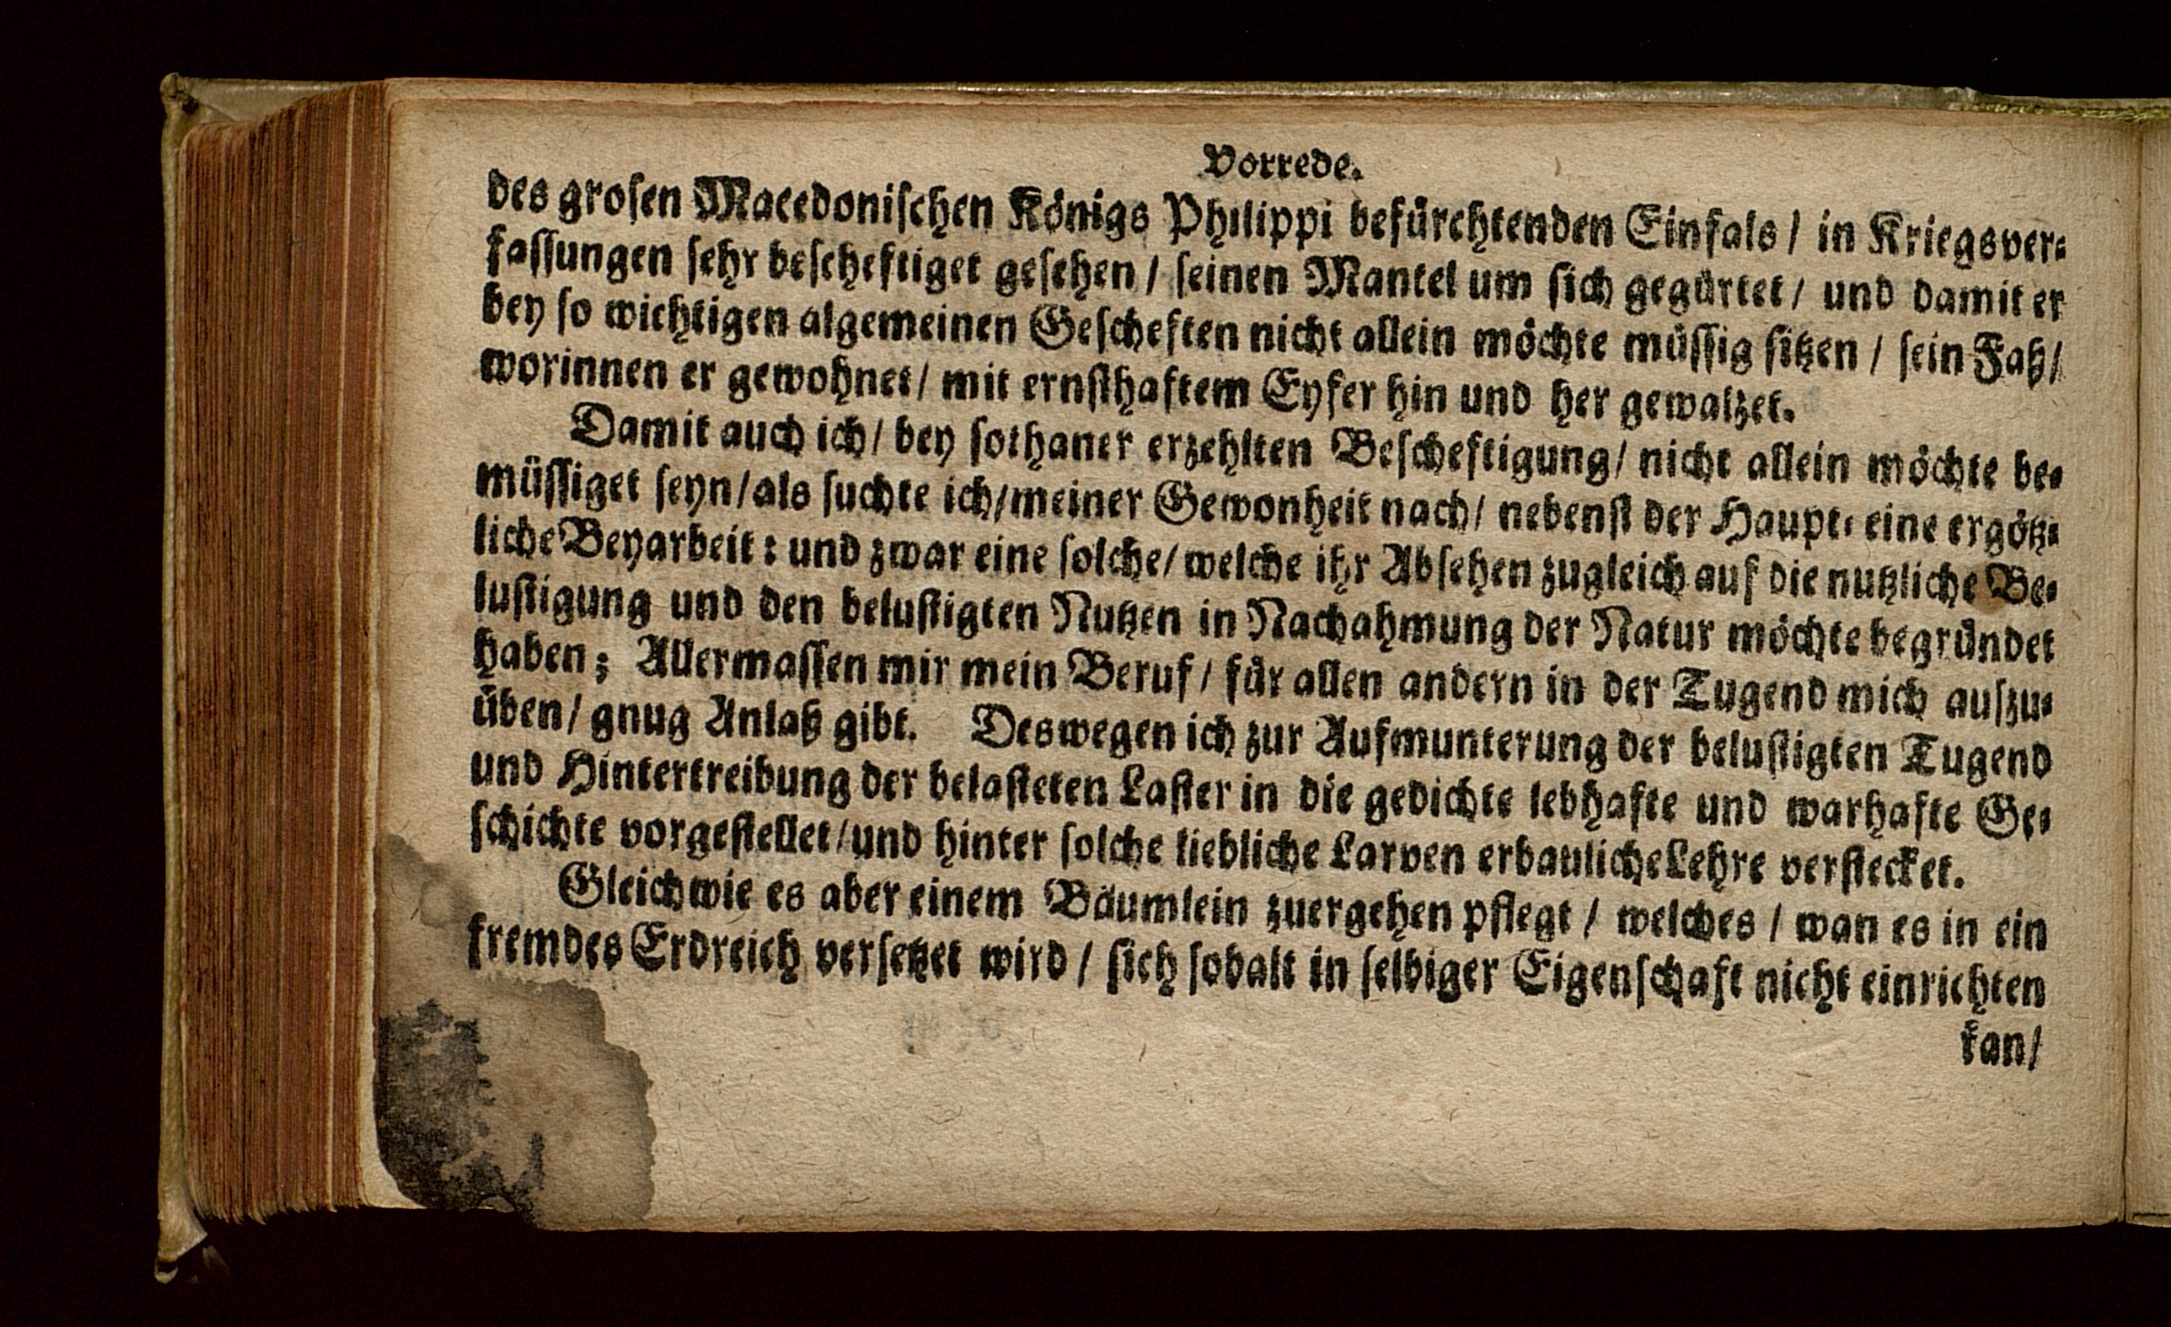 Vorrede.
des groſen Macedoniſchen Königs Philippi befürchtenden Einfals / in Kriegsver⸗
faſſungen ſehr beſcheftiget geſehen / ſeinen Mantel um ſich gegürtet / und damit er
bey ſo wichtigen algemeinen Geſcheften nicht allein möchte müſſig ſitzen / ſein Faß /
worinnen er gewohnet / mit ernſthaftem Eyfer hin und her gewaltzet.
Damit auch ich / bey ſothaner erzehlten Beſcheftigung / nicht allein möchte be⸗
müſſiget ſeyn / als ſuchte ich / meiner Gewonheit nach / nebenſt der Haupt⸗ eine ergötz⸗
liche Beyarbeit: und zwar eine ſolche / welche ihr Abſehen zugleich auf die nutzliche Be⸗
luſtigung und den beluſtigten Nutzen in Nachahmung der Natur möchte begründet
haben; Allermaſſen mir mein Beruf / für allen andern in der Tugend mich auſzu⸗
üben / gnug Anlaß gibt. Deswegen ich zur Aufmunterung der beluſtigten Tugend
und Hintertreibung der belaſteten Laſter in die gedichte lebhafte und warhafte Ge⸗
ſchichte vorgeſtellet / und hinter ſolche liebliche Larven erbauliche Lehre verſtecket.
Gleichwie es aber einem Bäumlein zuergehen pflegt / welches / wan es in ein
fremdes Erdreich verſetzet wird / ſich ſobalt in ſelbiger Eigenſchaft nicht einrichten
kan /